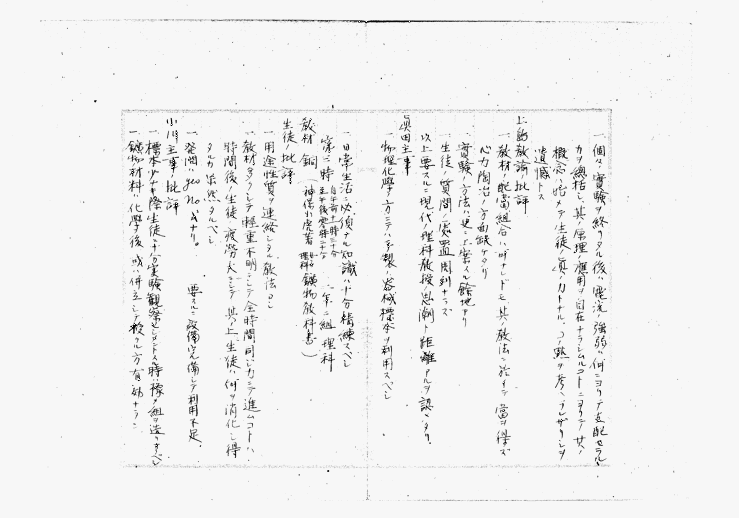 一、個々ノ實験ヲ終リタル後ハ電流ノ強弱ハ何ニヨリテ支配セラルヽ
カヲ總括シ其ノ原理ノ應用ヲ自在ナラシムルコトニヨリテ其ノ
概念ハ始メテ生徒ノ眞ノ力トナル、コノ點ヲ考ヘラレザリシヲ
遺憾トス
教諭批評
一、教材ノ配當組合ハ可ナレドモ其ノ教法ニ於テ當ヲ得ズ
心力陶冶ノ方面缺ケタリ
一、實験ノ方法ハ更ニ工案スル餘地アリ
一、生徒ノ質問ノ處置周到ナラズ
以上要スルニ現代ノ理科教授ノ思潮ト距離アルヲ認メタリ
眞田主事
一、物理化學ノ方ニテハ手製ノ器械標本ヲ利用スベシ
一、日常生活ニ必須ナル知識ハ十分精練スベシ
第六時 二年二組 理科
教材 銅 (神保小虎著 理科 鑛物教科書)
生徒ノ批評
一、用途性質ヲ連絡シタル教法ヨシ
一、教材多クシテ輕重不明ニシテ全時間同ジカニテ進ムコトハ
時間後ノ生徒ノ疲勞大ニシテ其ノ上生徒ハ何ヲ消化シ得
タルカ茫然タルベシ
一、發問ハ yes no 式ナリ。 要スルニ設備完備シテ利用不足
小川主事批評
一、標本少ナキ際生徒ニ十分實験觀察セシメントスル時様々組ヲ造ルベシ
一、鑛物材料ハ化學ノ後ニ或ハ併立シテ教フル方有効ナラン